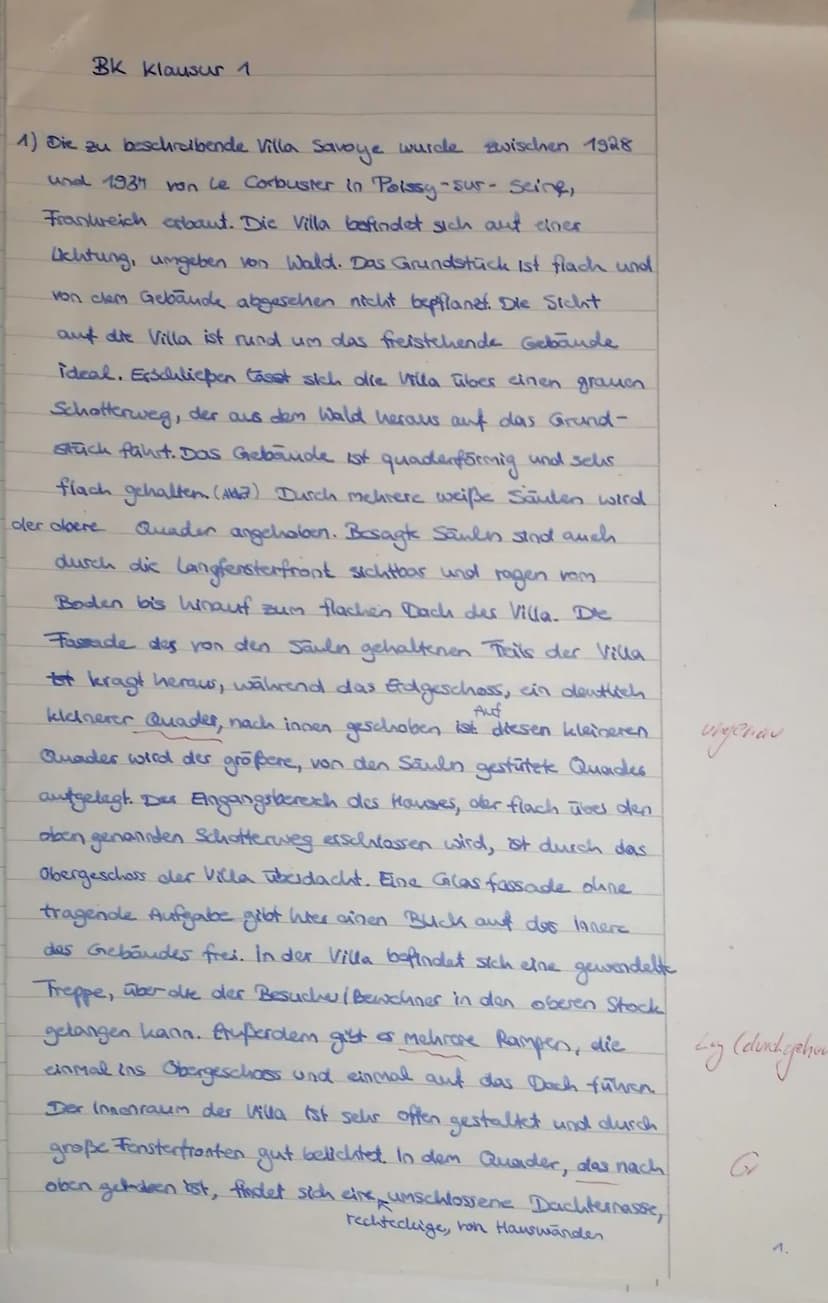 BK Klausur 1
1) Die zu beschreibende Villa Savoye wurde zwischen 1928
und 1931 von Le Corbusier in Poissy-sur-Seine,
Frankreich erbaut. Die Villa befindet sich auf einer
Lichtung, umgeben von Wald. Das Grundstück ist flach und
von dem Gebäude abgesehen nicht bepflanzt. Die Sicht
auf die Villa ist rund um das freistehende Gebäude
ideal. Erschließen lässt sich die Villa über einen grauen
Schotterweg, der aus dem Wald heraus auf das Grund-
stück führt. Das Gebäude ist quaderförmig und sehr
flach gehalten. Durch mehrere weiße Säulen wird
der obere Quader angehoben. Besagte Säulen sind auch
durch die Langfensterfront sichtbar und ragen vom
Boden bis hinauf zum flachen Dach der Villa. Die
Fassade des von den Säulen gehaltenen Teils der Villa
kragt heraus, während das Erdgeschoss, ein deutlich
kleinerer Quader, nach innen geschoben ist. Auf diesen kleineren ungenau
Quader wird der größere, von den Säulen gestützte Quader
aufgelegt. Der Eingangsbereich des Hauses, der flach über den
oben genannten Schotterweg erschlossen wird, ist durch das
Obergeschoss der Villa überdacht. Eine Glasfassade ohne
tragende Aufgabe gibt hier einen Blick auf das Innere
des Gebäudes frei. In der Villa befindet sich eine gewendelte
Treppe, über die der Besucher/Bewohner in den oberen Stock
gelangen kann. Außerdem gibt es mehrere Rampen, die
einmal ins Obergeschoss und einmal auf das Dach führen.
Der Innenraum der Villa ist sehr offen gestaltet und durch
große Fensterfronten gut belichtet. In dem Quader, das nach Gr
oben ist, findet sich eine rechteckige, von Hauswänden umschlossene Dachterrasse,
1.